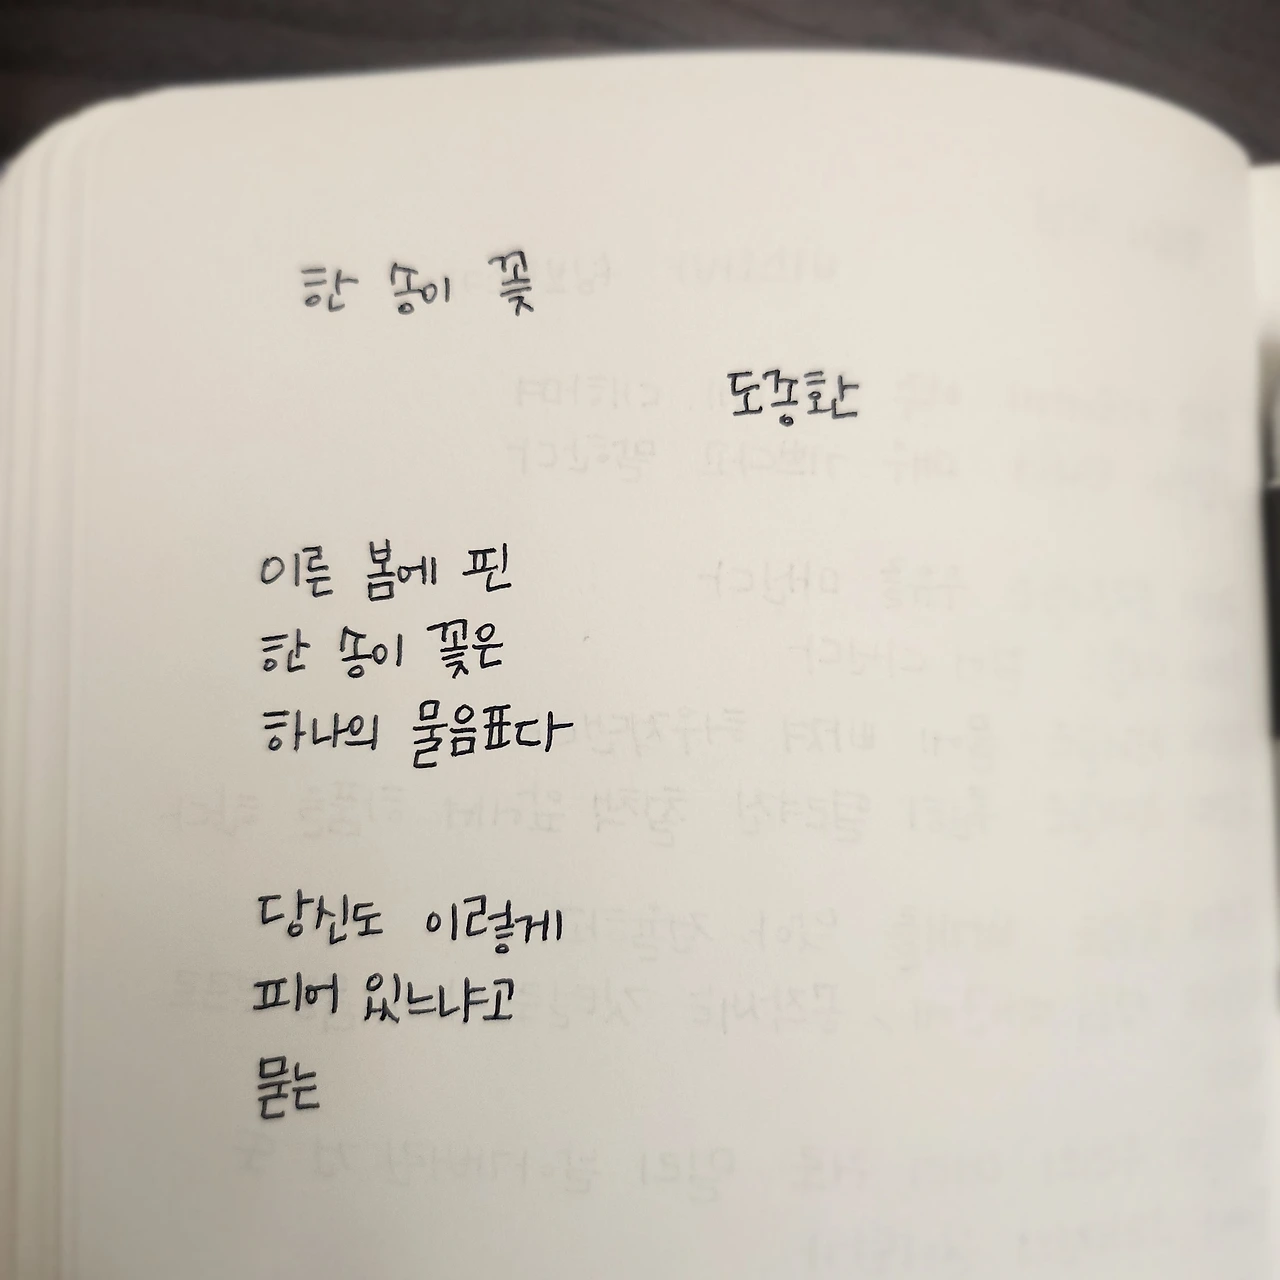 한 송이 꽃
도종환
이른 봄에 핀
한 송이 꽃은
하나의 물음표다
당신도 이렇게
피어 있느냐고
묻는